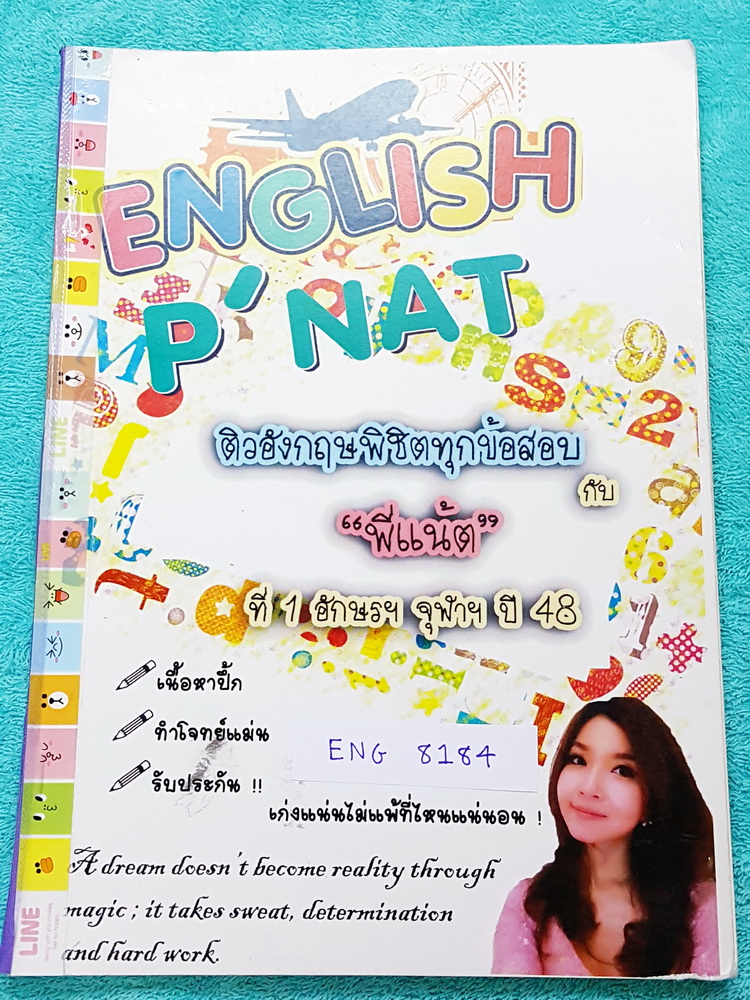 ENGLISH
P'NAT
ติวอังกฤษพิชิตทุกข้อสอบ
กับ
"พี่แน้ต"
ที่ 1 อักษรฯ จุฬาฯ ปี 48
เนื้อหาปึ้ก
ทำโจทย์แม่น
รับประกัน !!
ENG 8184
เก่งแน่นไม่แพ้ที่ไหนแน่นอน !
A dream doesn't become reality through
magic ; it takes sweat, determination
and hard work.
LINE
LINE